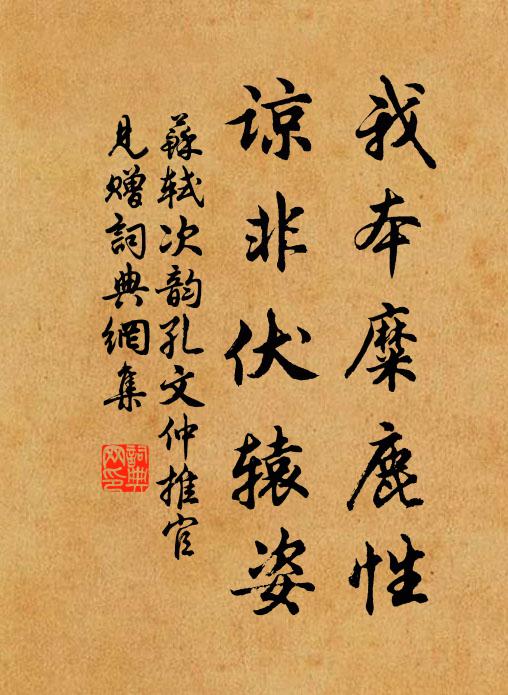 我本糜鹿性
谅非伏辕姿
蘇軾次韵孔文仲推官
見贈詞典網集
詞典网印